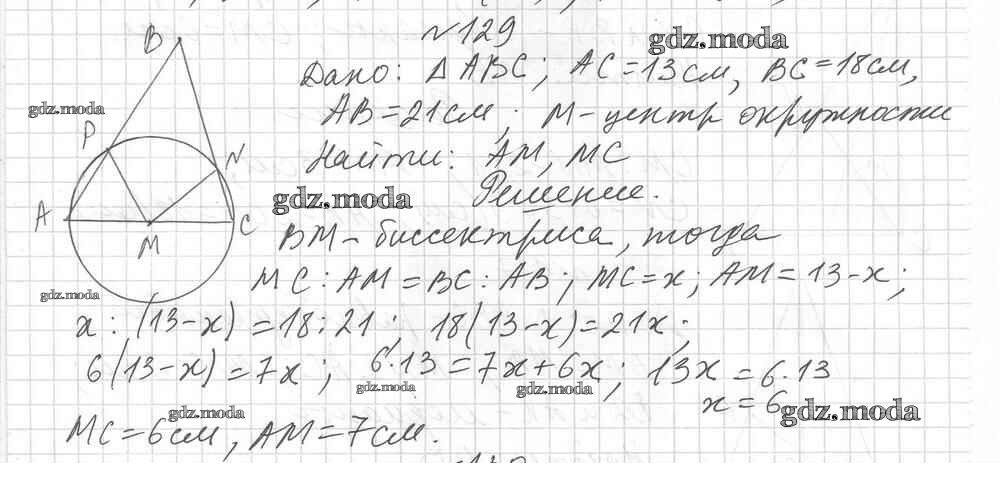 №129
gdz.moda
Дано: △ABC; AC=13см, BC=18см,
AB=21см; M-центр окружности
Найти: AM, MC
Решение.
BM-биссектриса, тогда
MC:AM=BC:AB; MC=x; AM=13-x;
x:(13-x)=18:21; 18(13-x)=21x;
6(13-x)=7x; 6·13=7x+6x; 13x=6·13
x=6
MC=6см, AM=7см.
B
gdz.moda
P
N
A
M
C
gdz.moda
gdz.moda
gdz.moda
gdz.moda
gdz.moda
gdz.moda